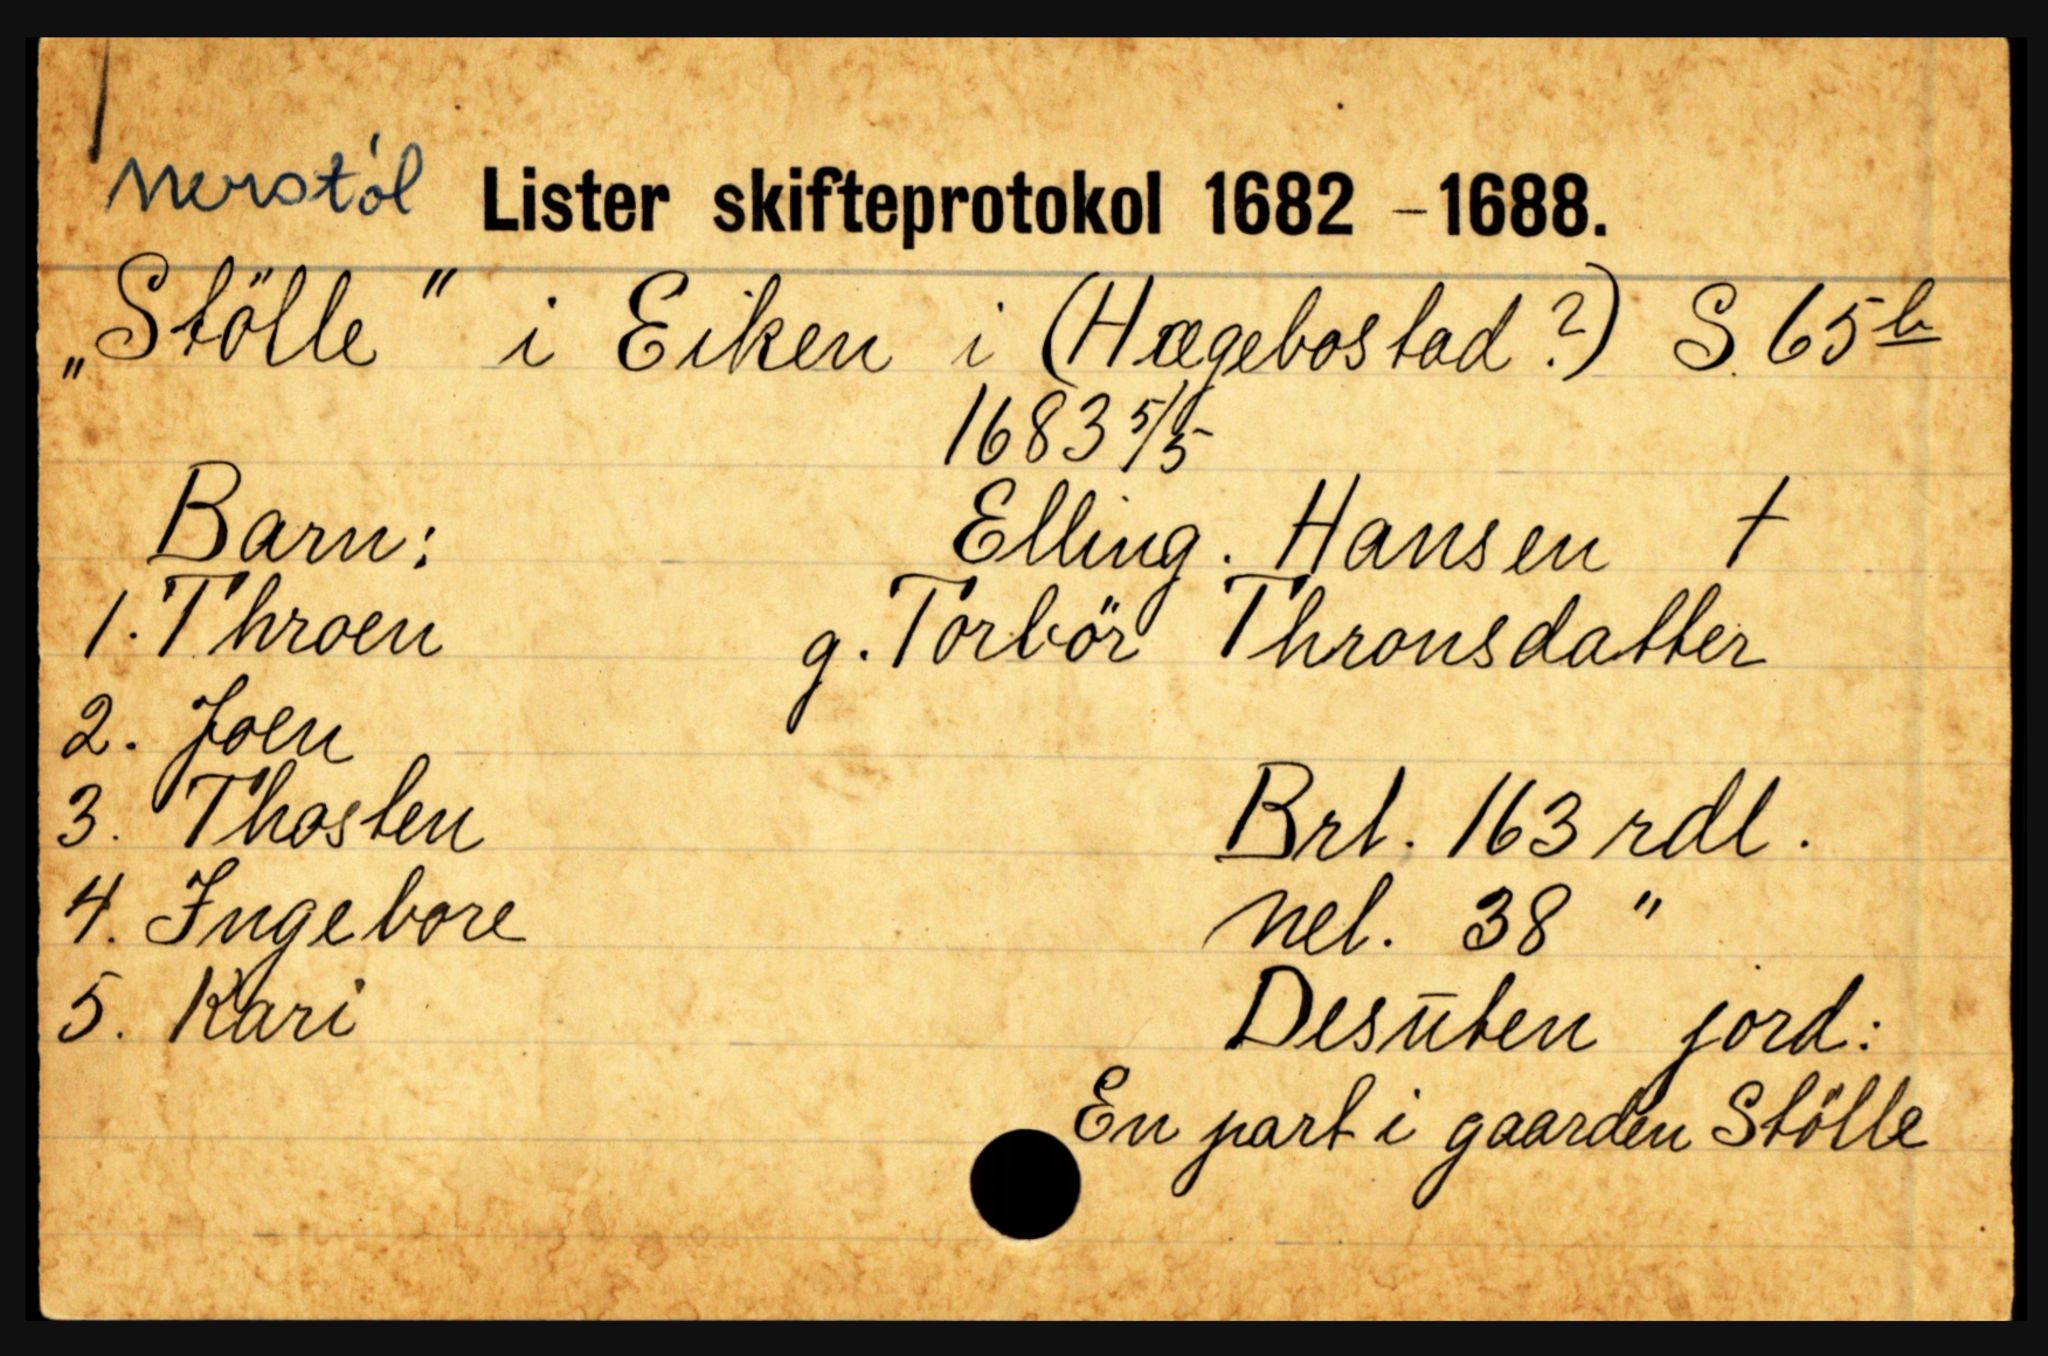 Nerstöl Lister skifteprotokol 1682 - 1688.
„Stölle" i Eiken i (Hægebostad?) S. 65b
1683 5/5
Barn: Elling. Hansen †
1. Throen g. Torbör Thronsdatter
2. Joen
3. Thosten Brt. 163 rdl.
4. Ingebore Nel. 38 "
5. Kari Desūten jord:
En part i gaarden Stölle